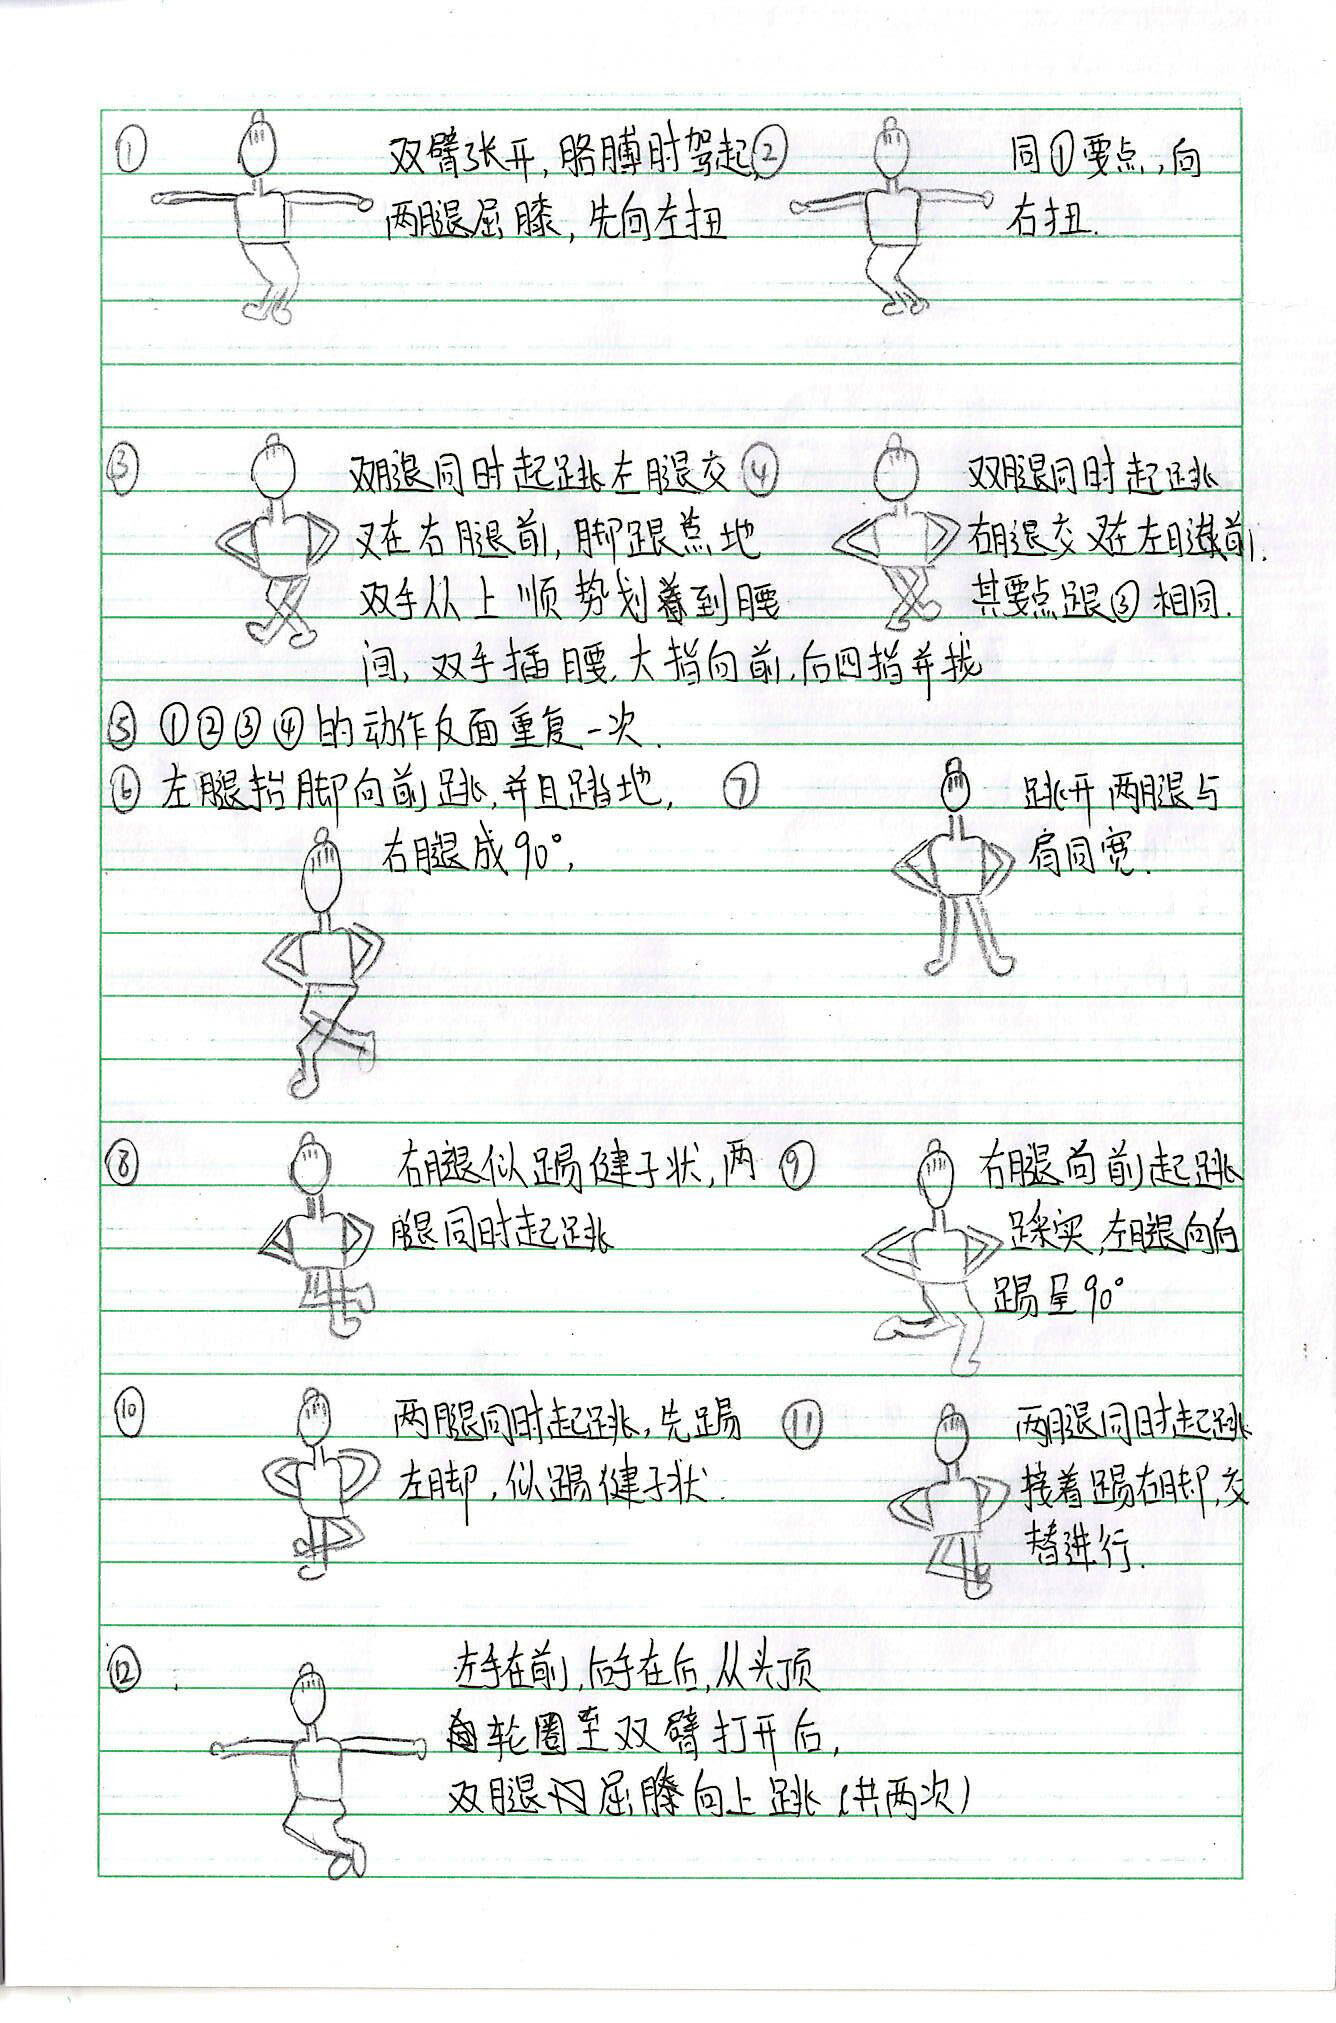 ① 双臂张开,胳膊肘驾起,
两腿屈膝,先向左扭
② 同①要点,向
右扭.
③ 双腿同时起跳左腿交
叉在右腿前,脚跟点地
双手从上顺势划着到腰
间,双手插腰.大指向前.后四指并拢
④ 双腿同时起跳
右腿交叉在左腿前.
其要点跟③相同.
⑤ ①②③④的动作反面重复一次.
⑥ 左腿抬脚向前跳,并且踏地,
右腿成90°,
⑦ 跳开两腿与
肩同宽.
⑧ 右腿似踢健子状,两
腿同时起跳
⑨ 右腿向前起跳
踩实,左腿向向
踢呈90°
⑩ 两腿同时起跳,先踢
左脚,似踢健子状.
⑪ 两腿同时起跳
接着踢右脚,交
替进行.
⑫ 左手在前,后手在后,从头顶
轮圈至双臂打开后,
双腿屈膝向上跳(共两次)